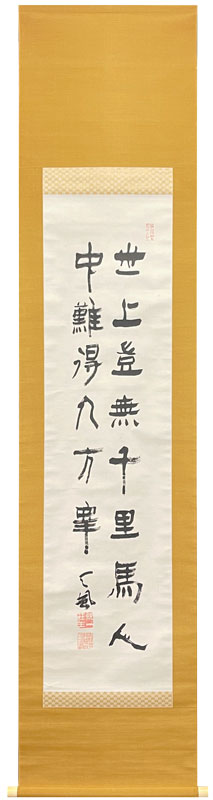 世上豈無千里馬人
中難得九方皐